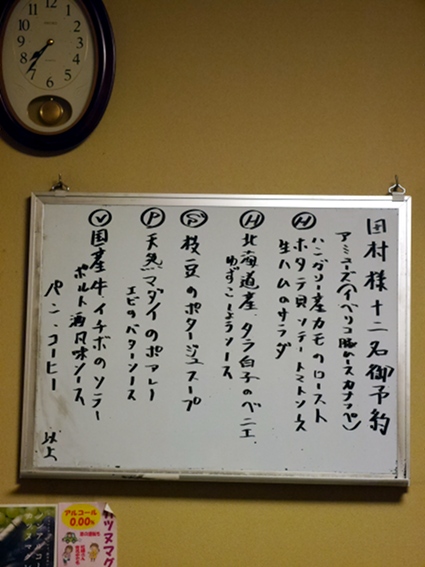 田村様十二名御予約
アミューズ(イベリコ豚ムースカナッペ)
Ⓗ ハンガリー産カモのロースト
ホタテ貝ソテートマトソース
生ハムのサラダ
Ⓗ 北海道産、タラ白子のベニエ
ゆずこしょうソース
Ⓢp 枝豆のポタージュスープ
Ⓟ 天然マダイのポアレー
エビのバターソース
Ⓥ 国産牛、イチボのソテー
ポルト酒風味ソース
パン、コーヒー
以上
SEIKO
アルコール
0.00%